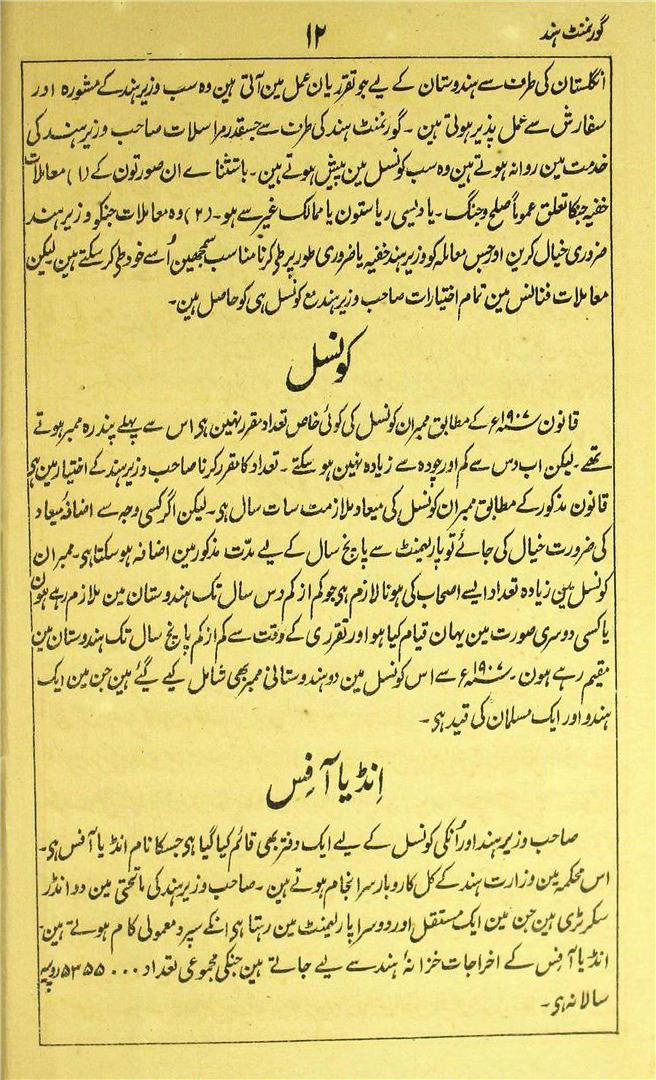 گورنمنٹ ہند
۱۲
انگلستان کی طرف سے ہندوستان کے لیے جو تقرریان عمل مین آتی ہین وہ سب وزیر ہند کے مشورہ اور
سفارش سے عمل پذیر ہوتی ہین ۔ گورنمنٹ ہند کی طرف سے جسقدر مراسلات صاحب وزیر ہند کی
خدمت مین روانہ ہوتے ہین وہ سب کونسل مین پیش ہوتے ہین ۔ باستثناے ان صورتون کے (۱) معاملات
خفیہ جنکا تعلق عموماً صلح و جنگ ۔ یا دیسی ریاستون یا ممالک غیر سے ہو ۔ (۲) وہ معاملات جنکو وزیر ہند
ضروری خیال کرین اور جس معاملہ کو وزیر ہند خفیہ یا ضروری طور پر طی کرنا مناسب سمجھین اُسے خود طی کر سکتے ہین لیکن
معاملات فنانس مین تمام اختیارات صاحب وزیر ہند مع کونسل ہی کو حاصل ہین ۔
کونسل
قانون ۱۹۰۷ء کے مطابق ممبران کونسل کی کوئی خاص تعداد مقرر نہین ہی اس سے پہلے پندرہ ممبر ہوتے
تھے ۔ لیکن اب دس سے کم اور چودہ سے زیادہ نہین ہو سکتے ۔ تعداد کا مقرر کرنا صاحب وزیر ہند کے اختیار مین ہی
قانون مذکور کے مطابق ممبران کونسل کی میعاد ملازمت سات سال ہی ۔ لیکن اگر کسی وجہ سے اضافۂ میعاد
کی ضرورت خیال کی جائے تو پارلیمنٹ سے پانچ سال کے لیے مدّت مذکور مین اضافہ ہو سکتا ہی ۔ ممبران
کونسل مین زیادہ تعداد ایسے اصحاب کی ہونا لازم ہی جو کم از کم دس سال تک ہندوستان مین ملازم رہے ہون
یا کسی دوسری صورت مین یہان قیام کیا ہو اور تقرری کے وقت سے کم از کم پانچ سال تک ہندوستان مین
مقیم رہے ہون ۔ ۱۹۰۷ء سے اس کونسل مین دو ہندوستانی ممبر بھی شامل کیے گئے ہین جن مین ایک
ہندو اور ایک مسلمان کی قید ہی ۔
اِنڈیا آفِس
صاحب وزیر ہند اور اُنکی کونسل کے لیے ایک دفتر بھی قائم کیا گیا ہی جسکا نام انڈیا آفس ہی ۔
اس محکمہ مین وزارت ہند کے کل کاروبار سر انجام ہوتے ہین ۔ صاحب وزیر ہند کی ماتحتی مین دو انڈر
سکرٹری ہین جن مین ایک مستقل اور دوسرا پارلیمنٹ مین رہتا ہی انکے سپرد معمولی کام ہوتے ہین ۔
انڈیا آفس کے اخراجات خزانۂ ہند سے لیے جاتے ہین جنکی مجموعی تعداد ۵۳۵۵۰۰۰ روپیہ
سالانہ ہی ۔